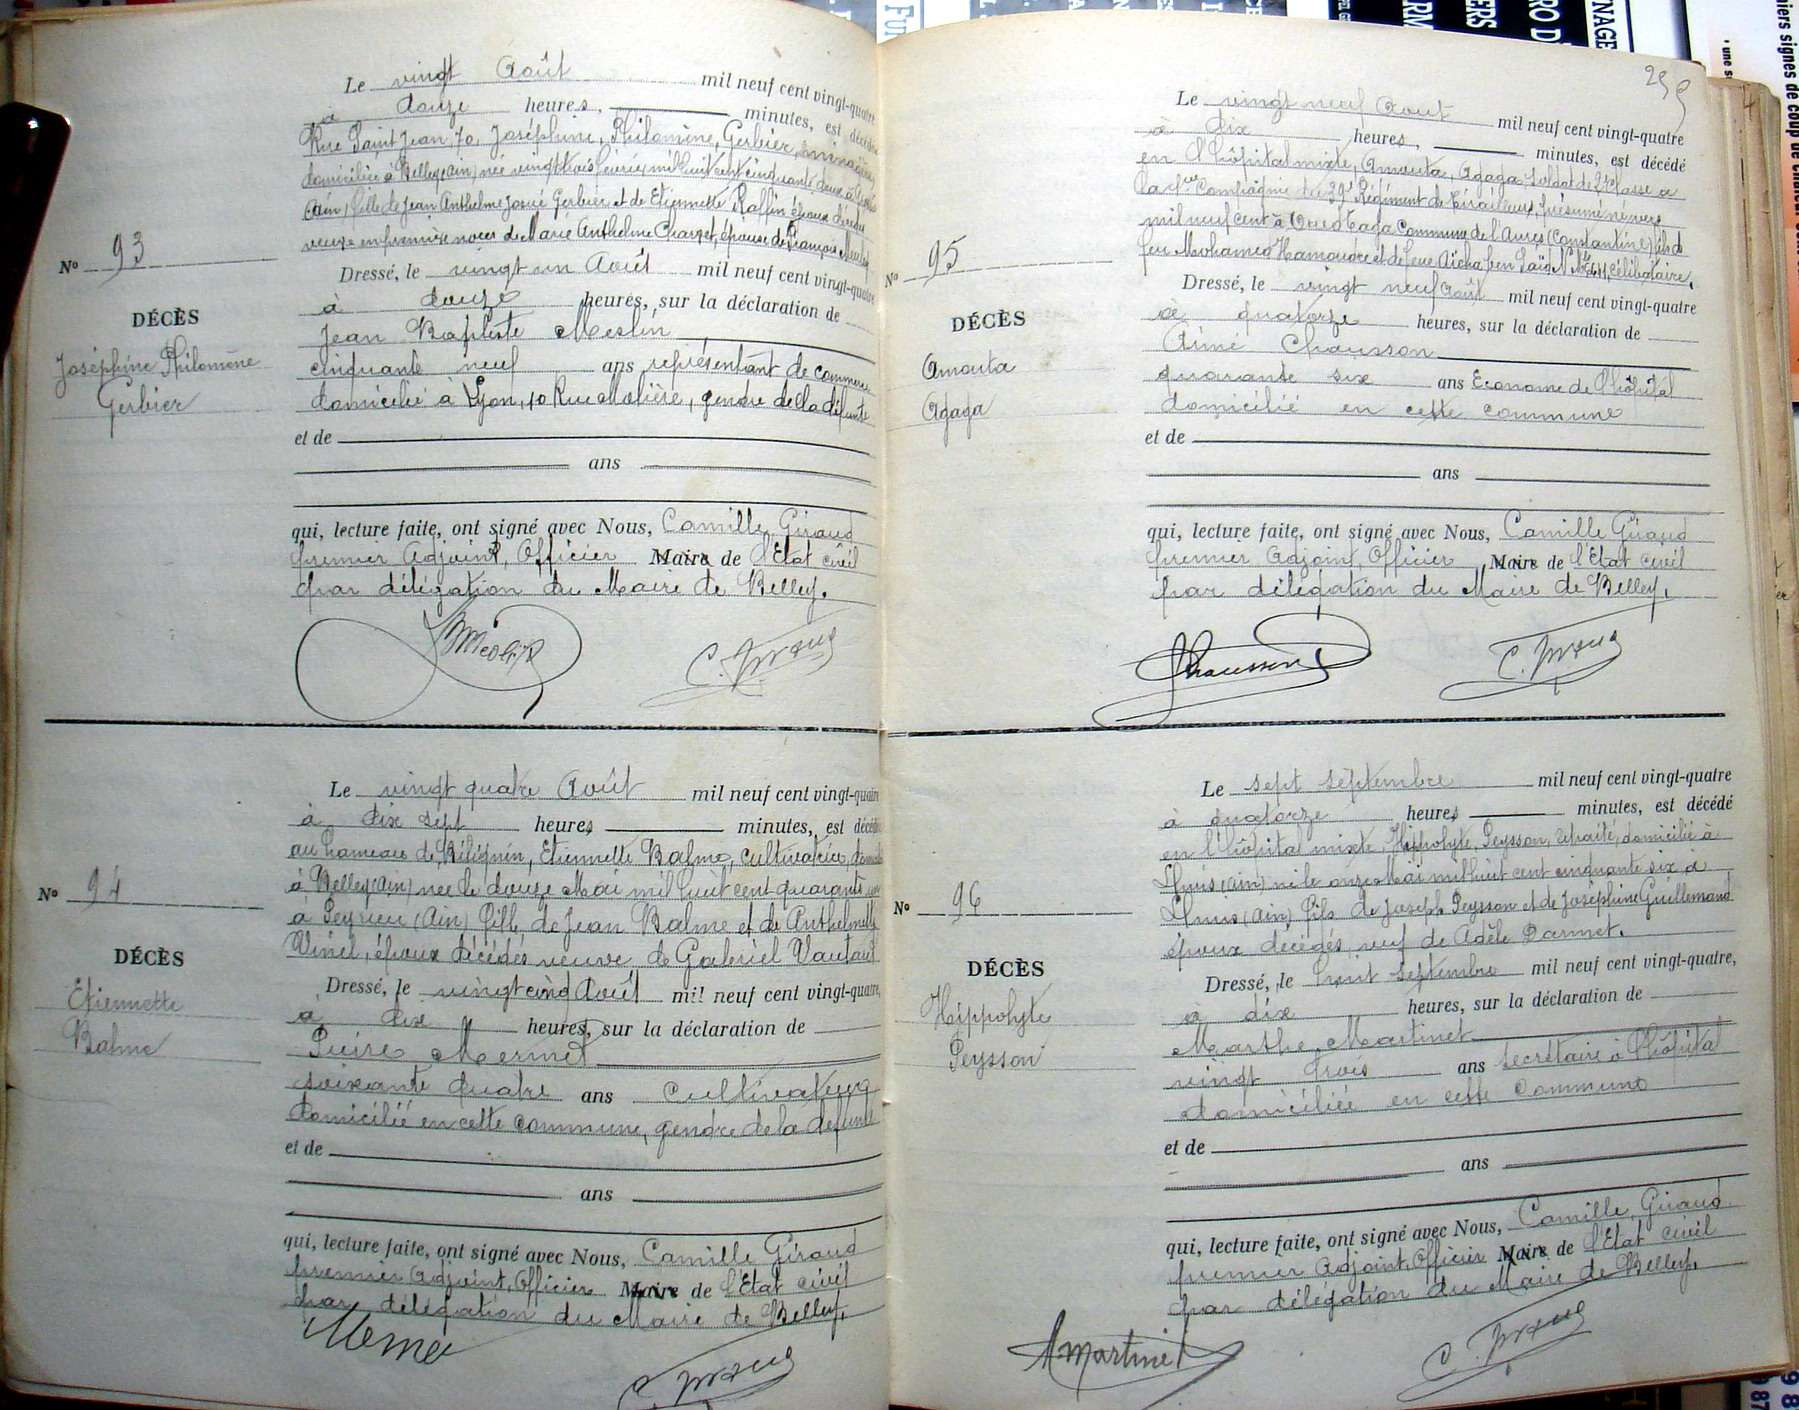 Le vingt Août mil neuf cent vingt-quatre
à douze heures, minutes, est décédée
Rue Saint Jean 70, Joséphine, Philomène, Gerbier,
domiciliée à Belley (Ain) née vingt trois février mil huit cent cinquante deux à
(Ain) fille de Jean Anthelme Josué Gerbier et de Etiennette Raffin époux décédés
veuve en premières noces de Marie Anthelme Charvet, épouse de François
No 93
Dressé, le vingt un Août mil neuf cent vingt-quatre
à douze heures, sur la déclaration de
DÉCÈS
Jean Baptiste Meslin
Joséphine Philomène
Gerbier
cinquante neuf ans représentant de commerce
domicilié à Lyon, 10 Rue Molière, gendre de la défunte
et de
ans
qui, lecture faite, ont signé avec Nous, Camille Giraud
premier Adjoint, Officier Maire de l'Etat civil
par délégation du Maire de Belley.
C. Giraud
Le vingt quatre Août mil neuf cent vingt-quatre
à dix sept heures minutes, est décédée
au hameau de Bilignin, Etiennette Balme, cultivatrice,
à Belley (Ain) née le douze Mai mil huit cent quarante
No 94
à Peyrieu (Ain) fille de Jean Balme et de Anthelmette
Vinel, époux décédés veuve de Gabriel Vautaret
DÉCÈS
Dressé, le vingt cinq Août mil neuf cent vingt-quatre,
Etiennette
Balme
à dix heures, sur la déclaration de
Pierre Mermet
soixante quatre ans cultivateur
domicilié en cette commune, gendre de la défunte
et de
ans
qui, lecture faite, ont signé avec Nous, Camille Giraud
premier Adjoint, Officier Maire de l'Etat civil
par délégation du Maire de Belley.
Mermet
C. Giraud
Le vingt neuf Aout mil neuf cent vingt-quatre
à dix heures, minutes, est décédé
en l'hôpital mixte, Amouta, Agaga Soldat de 2e Classe à
la 1re Compagnie du 39e Régiment de Tirailleurs, présumé né vers
mil neuf cent à Oued Taga Commune de l'Aures (Constantine) fils de
feu Mohamed Hamoudre et de feue Aïcha ben Saïd célibataire.
No 95
Dressé, le vingt neuf Août mil neuf cent vingt-quatre
à quatorze heures, sur la déclaration de
DÉCÈS
Aimé Chausson
Amouta
Agaga
quarante six ans Econome de l'hôpital
domicilié en cette commune
et de
ans
qui, lecture faite, ont signé avec Nous, Camille Giraud
premier Adjoint, Officier Maire de l'Etat civil
par délégation du Maire de Belley.
Chausson
C. Giraud
Le sept septembre mil neuf cent vingt-quatre
à quatorze heures minutes, est décédé
en l'hôpital mixte, Hippolyte, Peysson, retraité, domicilié à
Lhuis (Ain) né le onze Mai mil huit cent cinquante six à
No 96
Lhuis (Ain) fils de Joseph Peysson et de Joséphine Guillemand
époux décédés, veuf de Adèle Darmet.
DÉCÈS
Dressé, le huit septembre mil neuf cent vingt-quatre,
Hippolyte
Peysson
à dix heures, sur la déclaration de
Marthe Martinet
vingt trois ans secrétaire à l'hôpital
domiciliée en cette commune
et de
ans
qui, lecture faite, ont signé avec Nous, Camille Giraud
premier Adjoint, Officier Maire de l'Etat civil
par délégation du Maire de Belley.
Martinet
C. Giraud